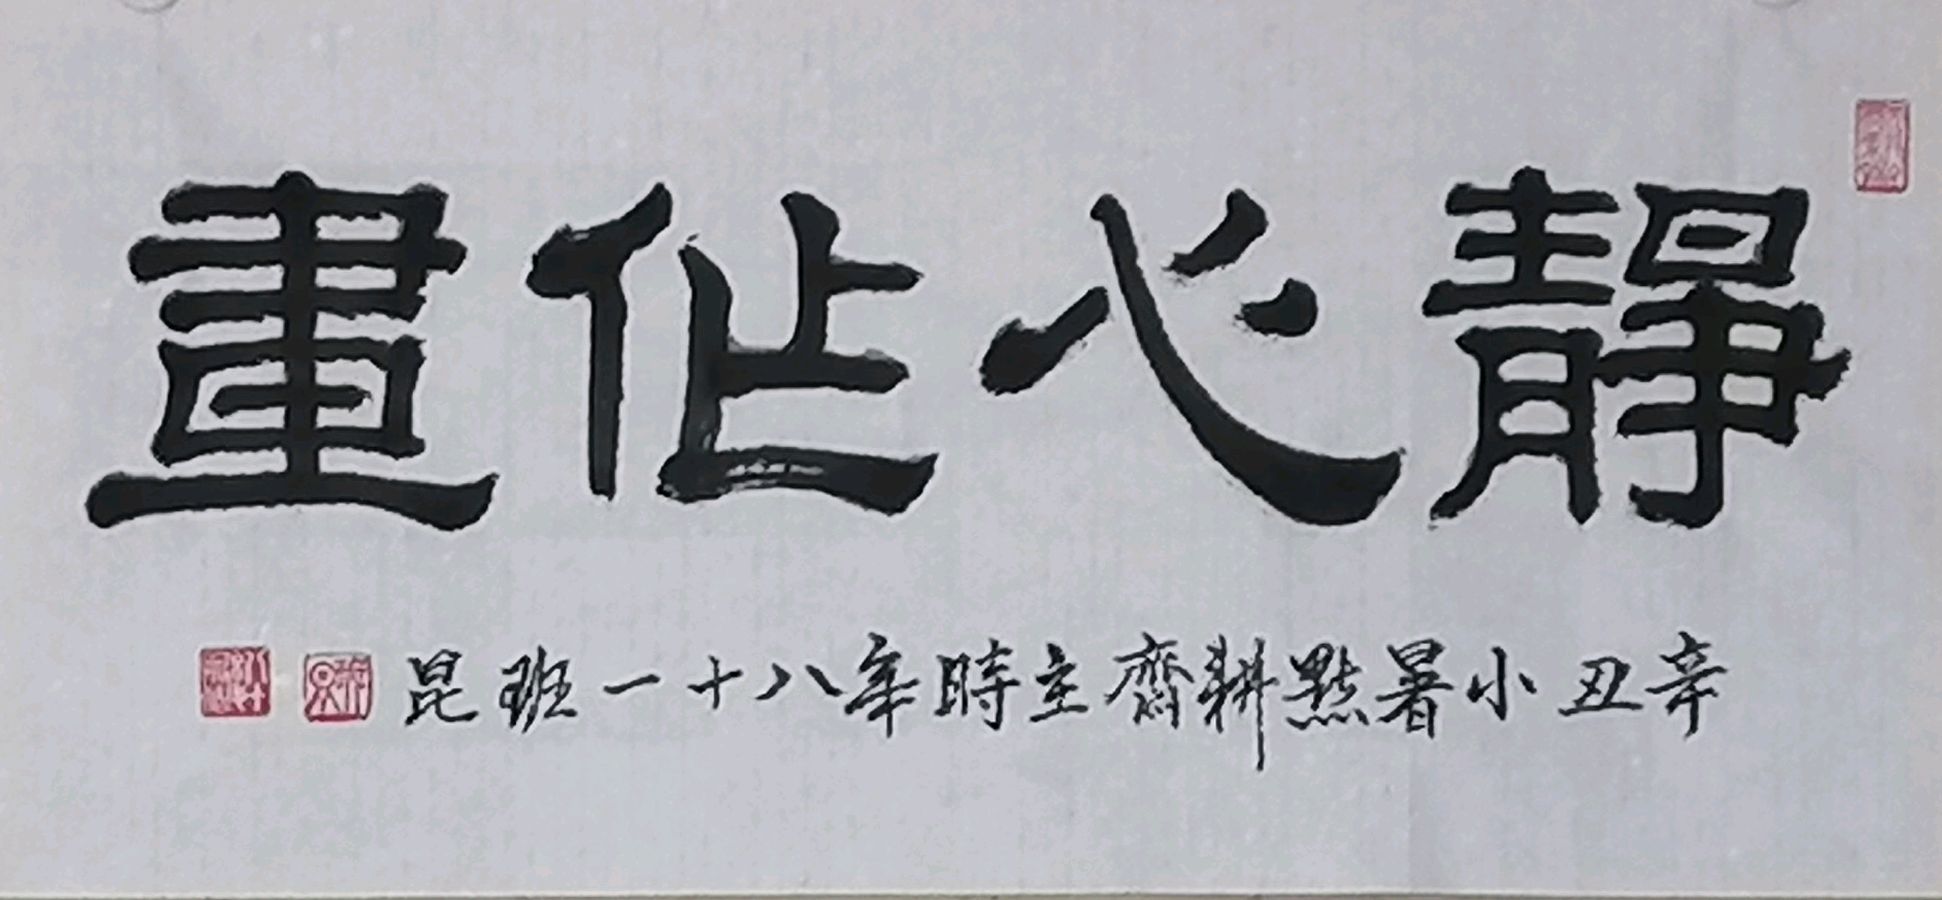 靜心作畫
辛丑小暑點耕齋主時年八十一班昆